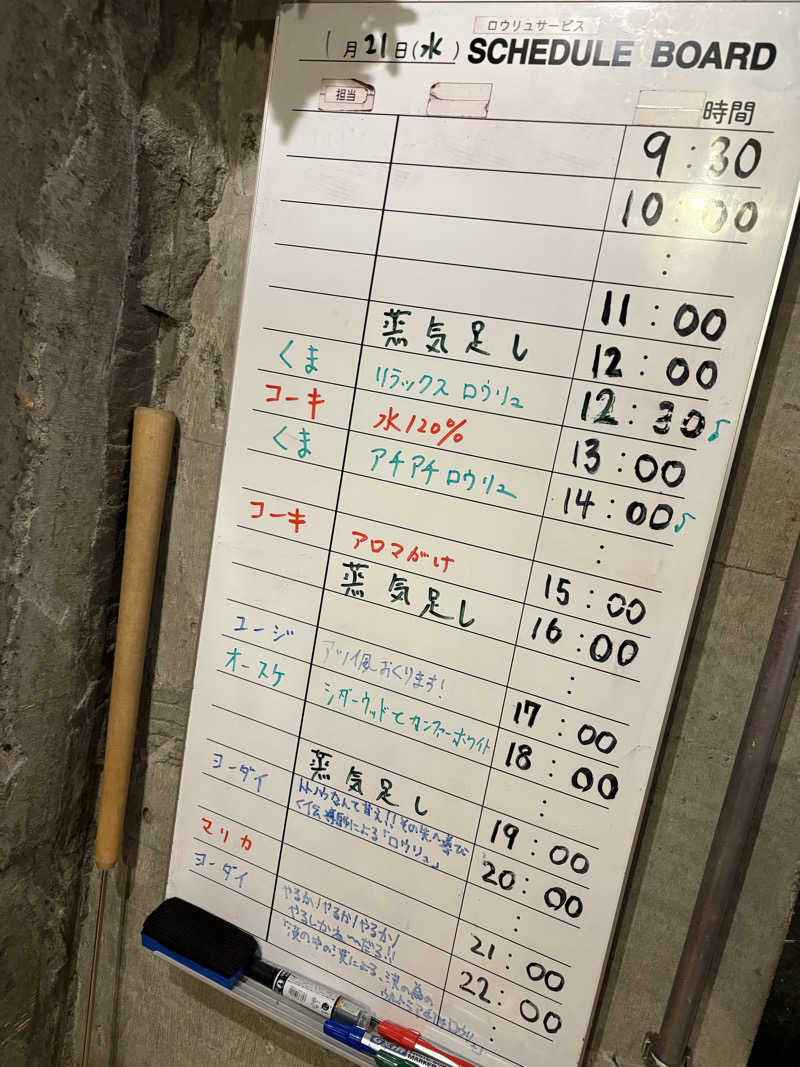 ロウリュサービス
1月21日(水) SCHEDULE BOARD
担当 時間
9:30
10:00
:
11:00
蒸気足し 12:00
くま リラックス ロウリュ 12:30♪
コーキ 水120% 13:00
くま アチアチ ロウリュ 14:00♪
:
コーキ アロマがけ 15:00
蒸気足し 16:00
:
ユージ アツイ風おくります! 17:00
オースケ シダーウッドとカンファーホワイト 18:00
:
蒸気足し 19:00
ヨーダイ トトノウなんて甘え!!その先へ 20:00
による「ロウリュ」
:
マリカ 21:00
ヨーダイ やるか!やるか!やるか! 22:00
やるしかね〜だろ!!
漢の中の漢による、漢の為の
: